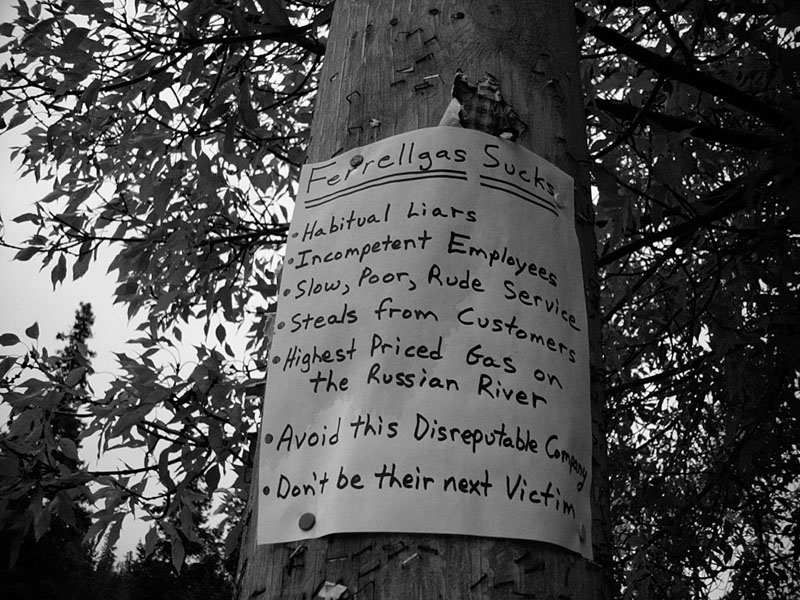 Ferrellgas Sucks
• Habitual Liars
• Incompetent Employees
• Slow, Poor, Rude Service
• Steals from Customers
• Highest Priced Gas on
the Russian River
• Avoid this Disreputable Company
• Don't be their next Victim